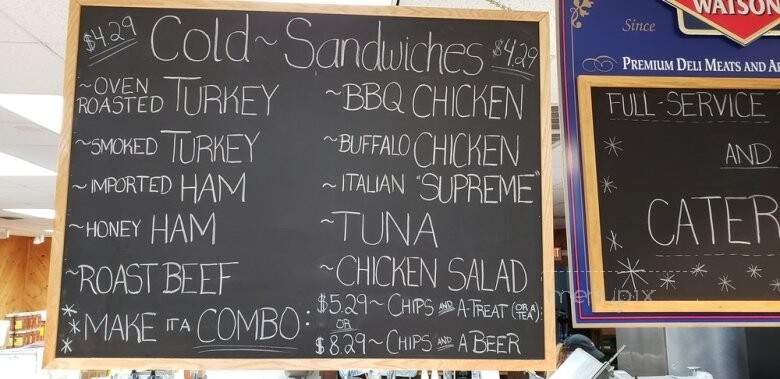 $4.29 Cold~Sandwiches $4.29
~OVEN ROASTED TURKEY
~SMOKED TURKEY
~IMPORTED HAM
~HONEY HAM
~ROAST BEEF
~BBQ CHICKEN
~BUFFALO CHICKEN
~ITALIAN "SUPREME"
~TUNA
~CHICKEN SALAD
*MAKE IT A COMBO:
$5.29~CHIPS AND A-TREAT (OR A TEA):
OR
$8.29~CHIPS AND A BEER
WATSON
Since
PREMIUM DELI MEATS AND
FULL-SERVICE
AND
CATER
menupix